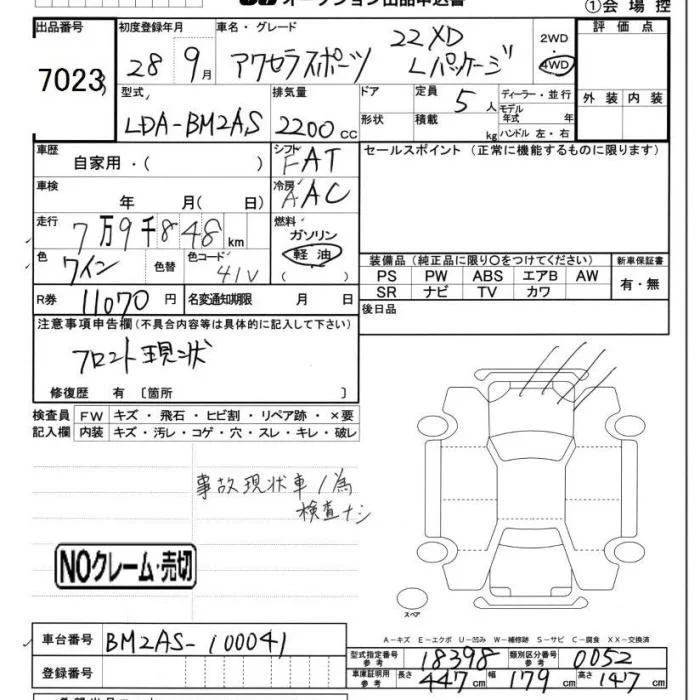 オークション出品申込書
①会場控
出品番号 初度登録年月 車名・グレード 評価点
7023 28 9月 アクセラスポーツ 22XD Lパッケージ 2WD 4WD
外装 内装
型式 排気量 ドア 定員 5人 ディーラー・並行
モデル年式 年
LDA-BM2AS 2200cc 形状 積載 kg ハンドル 左・右
車歴 シフト セールスポイント (正常に機能するものに限ります)
自家用・( ) FAT
車検 冷房
年 月(日) AAC
走行 燃料
7万9千848km ガソリン
軽油
( )
色 色替 色コード
ワイン 41V
装備品 (純正品に限り○をつけてください) 新車保証書
PS PW ABS エアB AW 有・無
SR ナビ TV カワ
R券 11070円 名変通知期限 月 日 後日品
注意事項申告欄(不具合内容等は具体的に記入して下さい)
フロント現状
修復歴 有 〔箇所 〕
検査員 FW キズ・飛石・ヒビ割・リペア跡・×要
記入欄 内装 キズ・汚レ・コゲ・穴・スレ・キレ・破レ
事故現状車ノ為
検査ナシ
NOクレーム・売切
スペア
車台番号 BM2AS-100041
登録番号
A-キズ E-エクボ U-凹み W-補修跡 S-サビ C-腐食 XX-交換済
型式指定番号 参考 18398 類別区分番号 参考 0052
車庫証明用 参考 長さ 447cm 幅 179cm 高さ 147cm